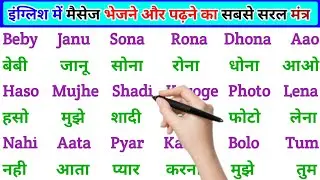 इंग्लिश में मैसेज भेजने और पढ़ने का सबसे सरल मंत्र
Beby Janu Sona Rona Dhona Aao
बेबी जानू सोना रोना धोना आओ
Haso Mujhe Shadi Photo Lena
हसो मुझे शादी फोटो लेना
Nahi Aata Pyar Bolo Tum
नही आता प्यार करना तुम